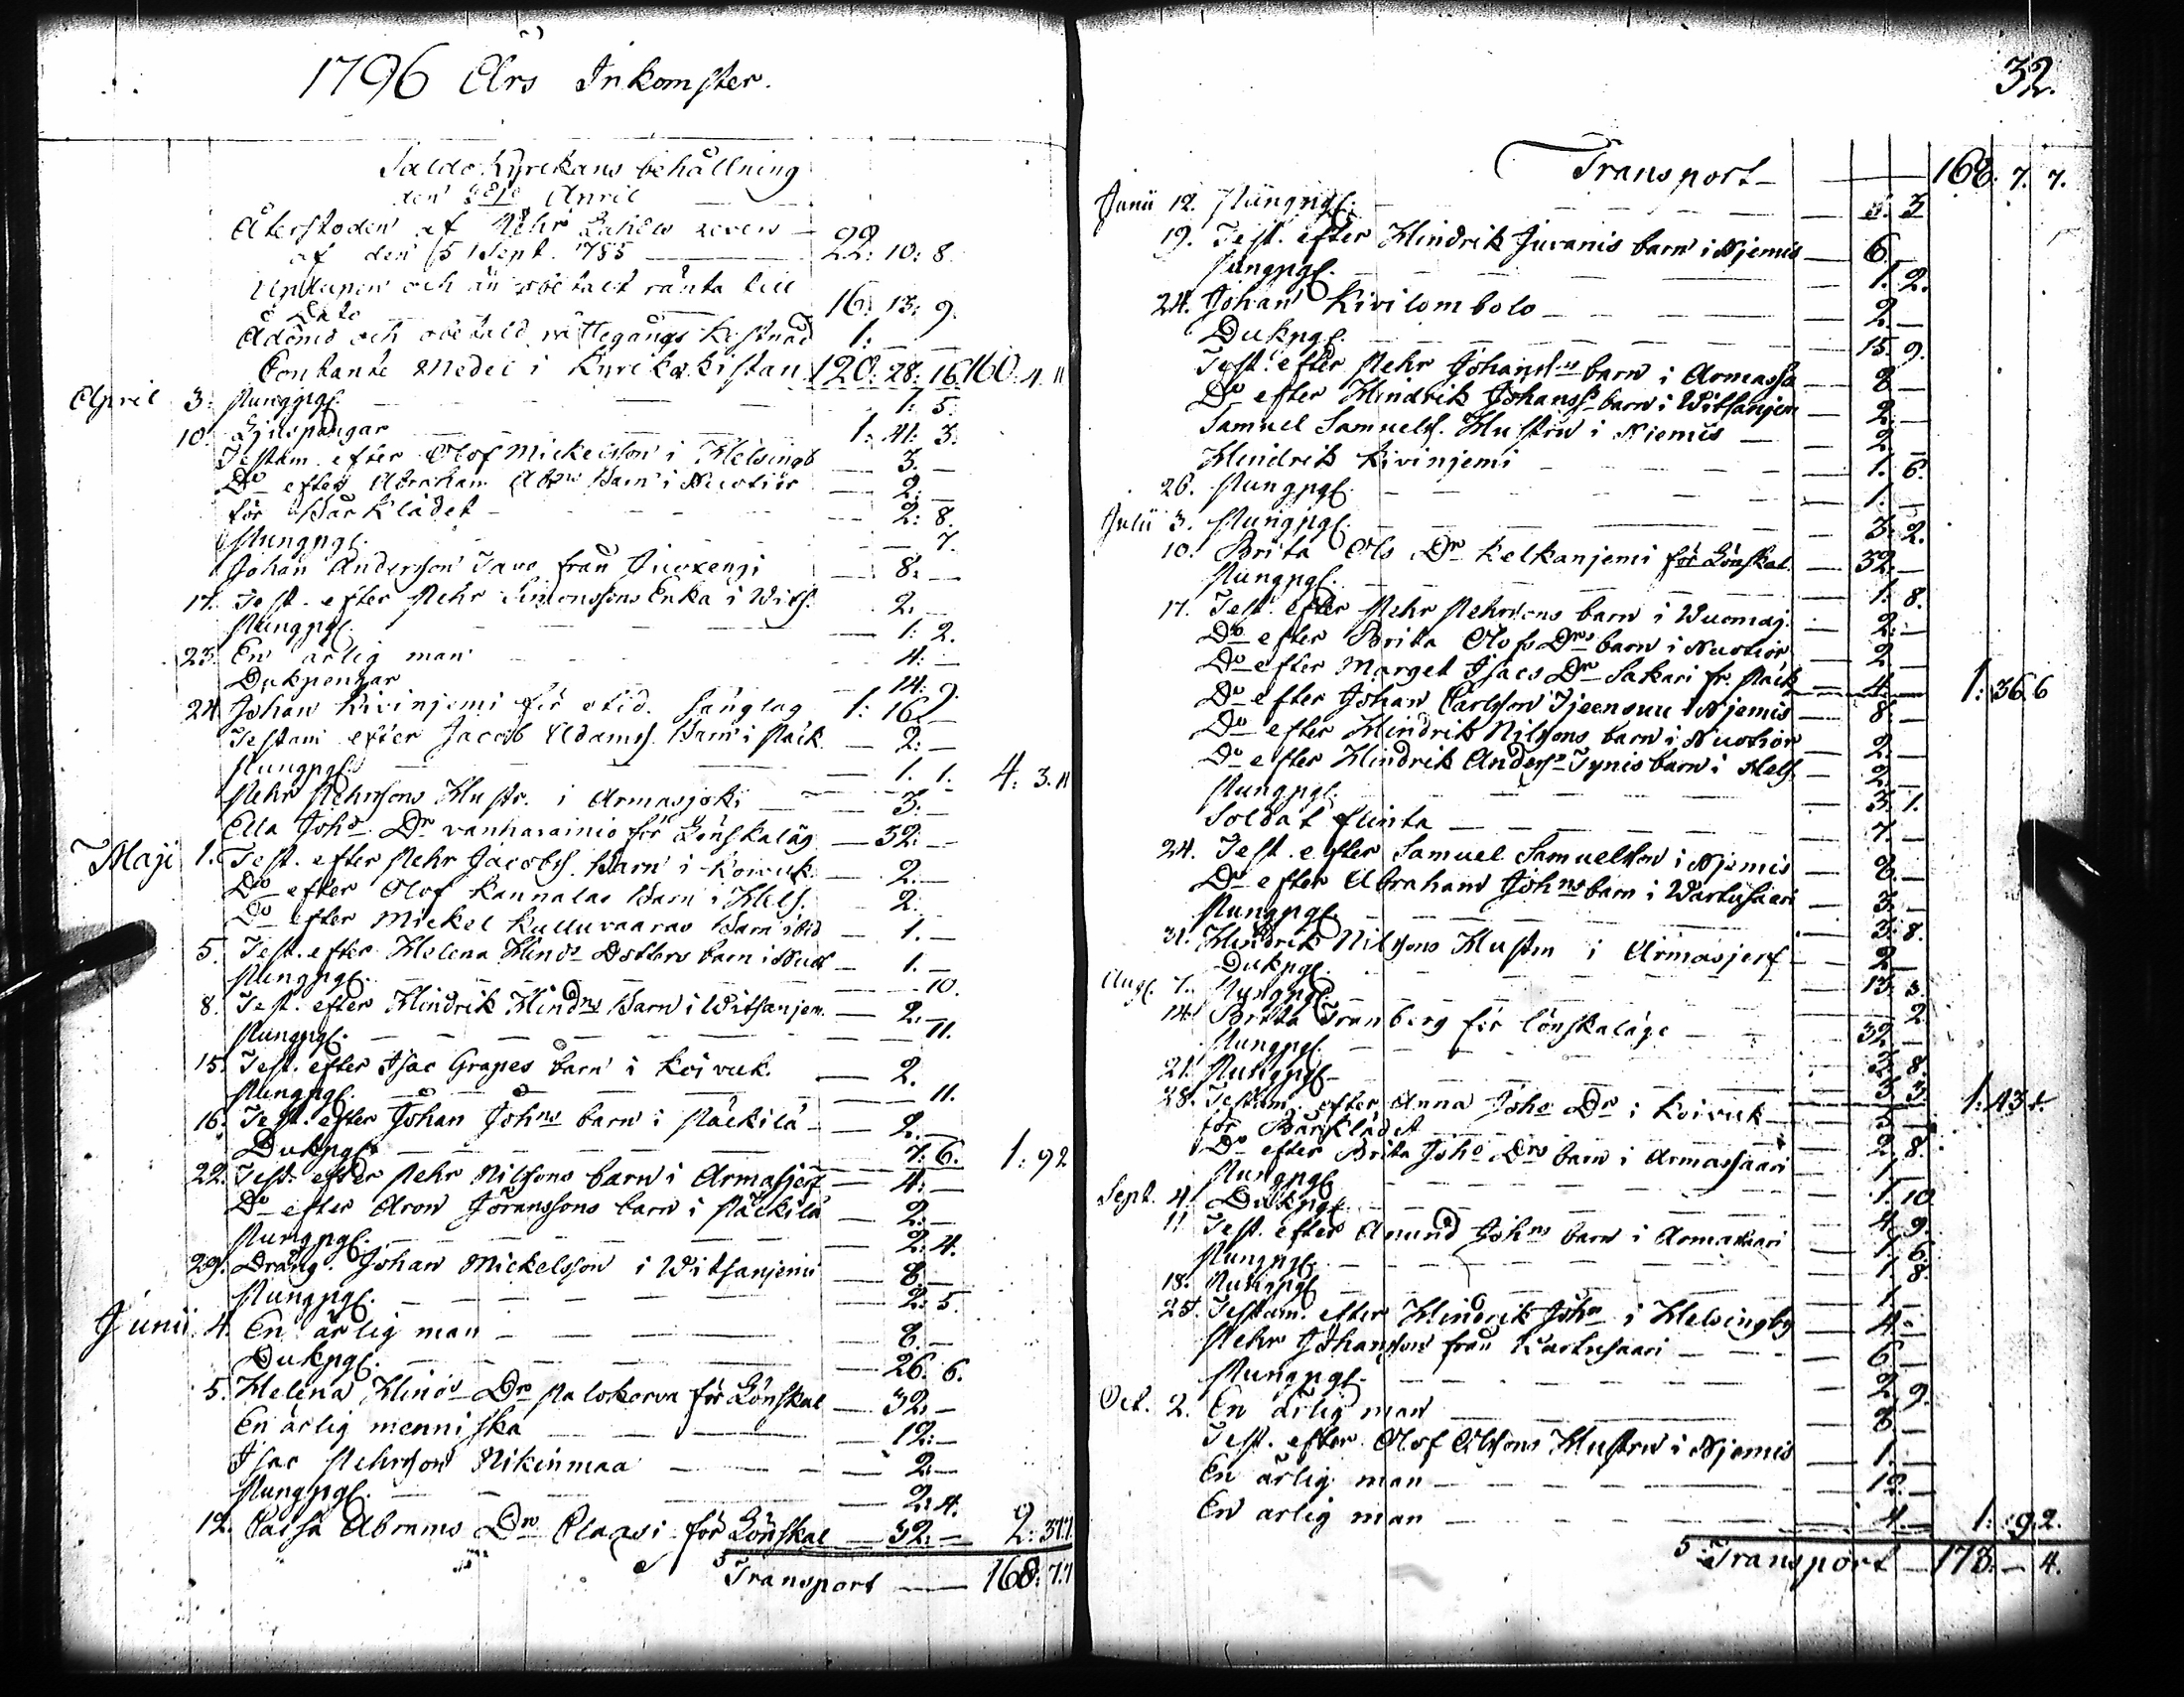 1796 Års Inkomster.
Saldo. Kyrckans behållning
den April
Återstoden af Pehr Lahtis revers
af den 15 Sept. 1785 — 22: 10: 8.
Uplupen och än obetalt ränta till
dato 16: 13: 9.
Adömd och obetald rättegångs kostnad 1: — —
Contante Medel i Kyrckokistan 120: 28: 16 160: 4. 11
April 3. Pungpgr. — 1: 5.
10. Ljuspengar — 1: 41: 3.
Testam. efter Olof Mickelsson i Helsingb — 3. —
Do efter Abraham Abrs Barn i Nuotior — 2: —
för Bårklädet — 2: 8.
Pungpgr. — 7.
Johan Andersson Tavo från Juoxengi — 8: —
17. Test. efter Pehr Simonssons Enka i Wits. 2. —
Pungpgr. — 1: 2.
23. En ärlig man — 4: —
Dukpengar — 14: 9.
24. Johan Kivinjemi för otid. sänglag 1: 16. —
Testam efter Jacob Adamss. Barn i Päck. — 2: —
Pungpgr. — 1. 1. 4: 3. 11
Pehr Pehrssons Hustr. i Armasjoki — 3. —
Ella Johs Dr vanhaiainio för Lönskaläg — 32: —
Maji 1. Test. efter Pehr Jacobss. Barn i Koivuk. — 2. —
Do efter Olof Kannalas Barn i Hels. — 2. —
Do efter Mickel Kulluvaaras Barn ibid — 1. —
5. Test. efter Helena Hinds Dotters barn i Nuot — 1. —
Pungpgr. — 10.
8. Test. efter Hindrik Hinds Barn i Witsanjem. — 2. —
Pungpgr. — 11.
15. Test. efter Isac Grapes barn i Koivuk. — 2.
Pungpgr. — 11.
16. Test. efter Johan Johns barn i Päckilä — 2. —
Dukpgr. — 7: 6. 1: 9 2
22. Test. efter Pehr Nilssons barn i Armasjerf — 4: —
Do efter Aron Joranssons barn i Päckilä — 2. —
Pungpgr. — 2: 4.
29. Dräng. Johan Mickelsson i Witsanjemi — 8. —
Pungpgr. — 2: 5.
Junii 4. En ärlig man — 8. —
Dukpgr. — 26. 6.
5. Helena Hinds Dr Palokorva för Lönskal — 32. —
En ärlig menniska — 12: —
Isac Pehrsson Nikinmaa — 2. —
Pungpgr. — 2: 4.
12. Caisa Abrams Dr Plaasi för Lönskal — 32. — 2: 31: 1
Transport — 168: 7: 7
32.
Transport — 168: 7. 7.
Junii 12. Pungpgr. — 3
19. Test. efter Hindrik Juvanis barn i Njemis — 6. —
Pungpgr. — 1. 2.
24. Johan Kivilombolo — 2. —
Dukpgr. — 15. 9.
Test. efter Pehr Johanss barn i Armassa — 8 —
Do efter Hindrik Johanss barn i Witsanjem — 2. —
Samuel Samuels. Hustru i Niemis — 2 —
Hindrik Kivinjemi — 1. 6.
26. Pungpgr. — 1. —
Julii 3. Pungpgr. — 3. 2.
10. Brita Ols Dr Kelkanjemi för Lönskal. — 32. —
Pungpgr. — 1. 8.
17. Test. efter Pehr Pehrssons barn i Wuomaj. — 2. —
Do efter Brita Olofs Drs barn i Nuotior — 2 —
Do efter Marget Isacs Dr Sakari fr. Päck — 4 — 1: 36 6
Do efter Johan Carlsson Tjeensuu i Njemis — 8. —
Do efter Hindrik Nilssons barn i Nuotior — 2. —
Do efter Hindrik Anderss Tynis barn i Hels — 2. —
Pungpgr. — 3. 1.
Soldat Flinta — 7. —
24. Test. efter Samuel Samuelsson i Njemis — 8. —
Do efter Abraham Johns barn i Wartusaari — 3. —
Pungpgr. — 3. 8.
31. Hindrik Nilssons Hustru i Armasjerf — 2. —
Dukpgr. — 13. 3.
Aug. 7. Pungpgr. — 2
14. Brita Tranberg för lönskaläge — 32. —
Pungpgr. — 8.
21. Pungpgr. — 3. 3.
28. Testam. efter Anna Johs Dr i Koivuk — 3. — 1: 43
för Bårklädet — 2. 8.
Do efter Brita Johs Drs barn i Armassaari — 1 —
Pungpgr. — 1. 10
Sept. 4. Dukpgr. — 4. 9.
11. Test. efter Anund Johns barn i Armassaari — 1. 6
Pungpgr. — 1. 8.
18. Pungpgr. — 1. —
25. Testam. efter Hindrik Johs i Helsingby — 4. —
Pehr Johansson från Kartusaari — 6. —
Pungpgr. — 2. 9.
Oct. 2. En ärlig man — 8 —
Test. efter Olof Olssons Hustru i Njemis — 1. —
En ärlig man — 12. —
En ärlig man — 4. — 1: 9. 2.
Transport — 173: — 4.